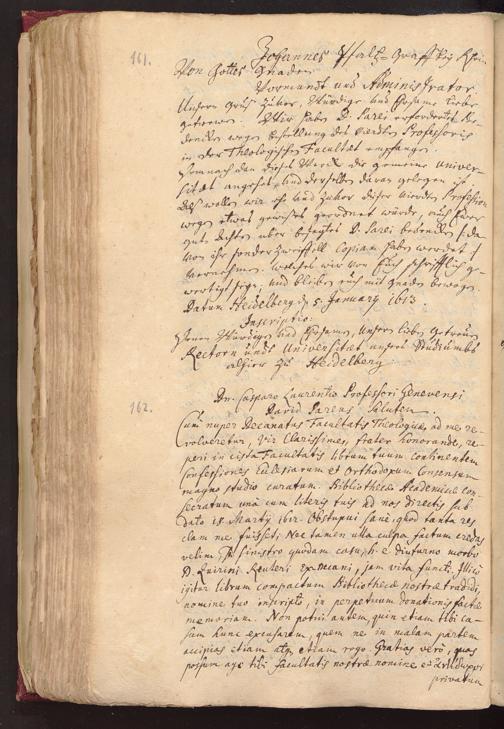 161.
Johannes Pfaltz-Graff bey Rhein
Von Gottes Gnaden
Vormundt und Administrator.
Unsern Gruß zuvor, Würdige und Ehrsame liebe
getrewe. Wir haben D. Parei erfordertes Be-
dencken wegen bestellung des vierdten Professoris
in der Theologischen Facultaet empfangen.
Demnach dan dieses Werck die gemeine Univer-
sitaet angehet, und derselben daran gelegen ist,
Als wollen wir ehe und zuvor dieser vierdten Profession
wegen etwas gewisses geordnet würde, auch Ewer
gutachten uber besagtes D. Parei bedencken /: da-
von ihr sonder Zweiffell Copiam haben werdet :/
vernehmen. Welches wir von Euch schrifftlich ge-
wertigt seyn, und bleiben euch mit gnaden bewogen.
Datum Heidelberg den 5. January 1613.
Inscriptio:
Denen Würdigen und Ehrsamen, Unsern lieben getrewen
Rectorn undt Universitaet unsers Studiumbs
alhier zu Heidelberg.
162.
Dn. Casparo Laurentio Professori Genevensi
David Pareus Salutem.
Cum nuper Decanatus Facultatis Theologicae ad me re-
volveretur, Vir Clarissime, frater honorande, re-
peri in cista Facultatis librum tuum continentem
Confessiones Ecclesiarum et Orthodoxum Consensum
magno studio curatum. Bibliothecae Academicae con-
secratum una cum literis tuis ad nos directis sub
dato 18. Martij 1612. Obstupui sane, quod tanta res
clam me fuisset, Nec tamen ulla culpa factum credas
velim, sed sinistro quodam casu, h. e. diuturno morbo
D. Quirini Reuteri exdecani, jam vita functi. Illico
igitur librum compactum Bibliothecae nostrae tradidi,
nomine tuo inscripto, in perpetuam donationis factae
memoriam. Non potui autem quin etiam tibi ca-
sum hunc excusarem, quem ne in malam partem
accipias etiam atq. etiam rogo. Gratias vero, quas
possum ago tibi Facultatis nostrae nomine et
privatum